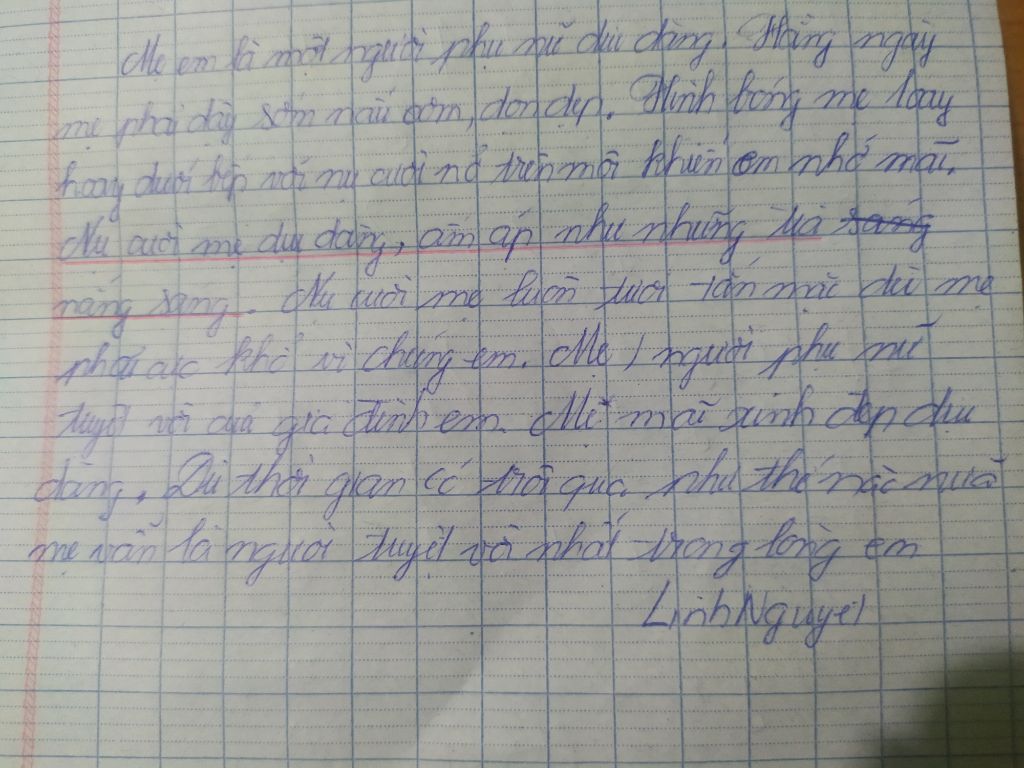 Mẹ em là một người phụ nữ dịu dàng. Hàng ngày
mẹ phải dậy sớm nấu cơm, dọn dẹp. Hình bóng mẹ loay
hoay dưới bếp với nụ cười nở trên môi khiến em nhớ mãi.
Nụ cười mẹ dịu dàng, ấm áp như những tia sáng
nắng sáng. Nụ cười mẹ luôn tươi tắn mặc dù mẹ
phải cực khổ vì chúng em. Mẹ 1 người phụ nữ
tuyệt vời của gia đình em. Mẹ mãi xinh đẹp dịu
dàng. Dù thời gian có trôi qua như thế nào nữa
mẹ vẫn là người tuyệt vời nhất trong lòng em
Linh Nguyệt